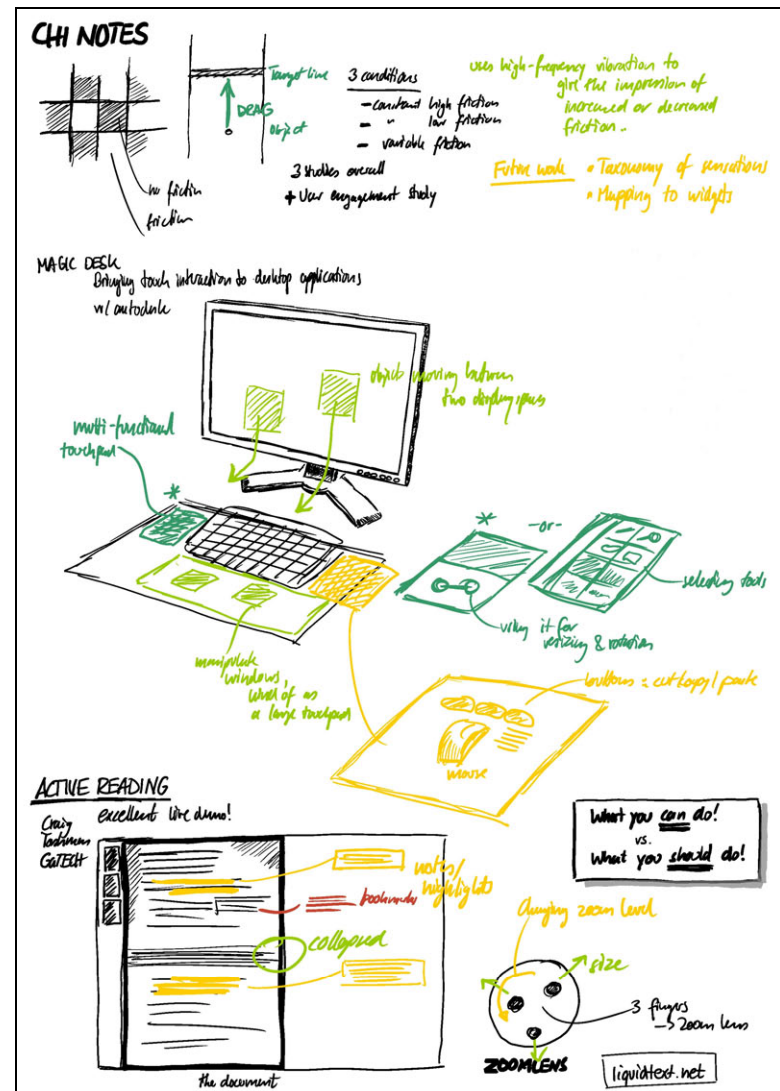 CHI NOTES
Target line
DRAG
object
no friction
friction
3 conditions
- constant high friction
- " low friction
- variable friction
3 studies overall
+ User engagement study
uses high-frequency vibration to
give the impression of
increased or decreased
friction.
Future work • Taxonomy of sensations
• Mapping to widgets
MAGIC DESK
Bringing touch interaction to desktop applications
w/ autodesk
objects moving between
two display spaces
multi-functional
touchpad
*
*
-or-
selecting tools
using it for
resizing & rotation
manipulate
windows,
kind of as
a large touchpad
buttons = cut/copy/paste
mouse
ACTIVE READING
excellent live demo!
Craig
GaTECH
notes/
highlights
bookmarks
collapsed
the document
What you can do!
vs.
What you should do!
changing zoom level
size
3 fingers
→ zoom lens
ZOOMLENS
liquidtext.net